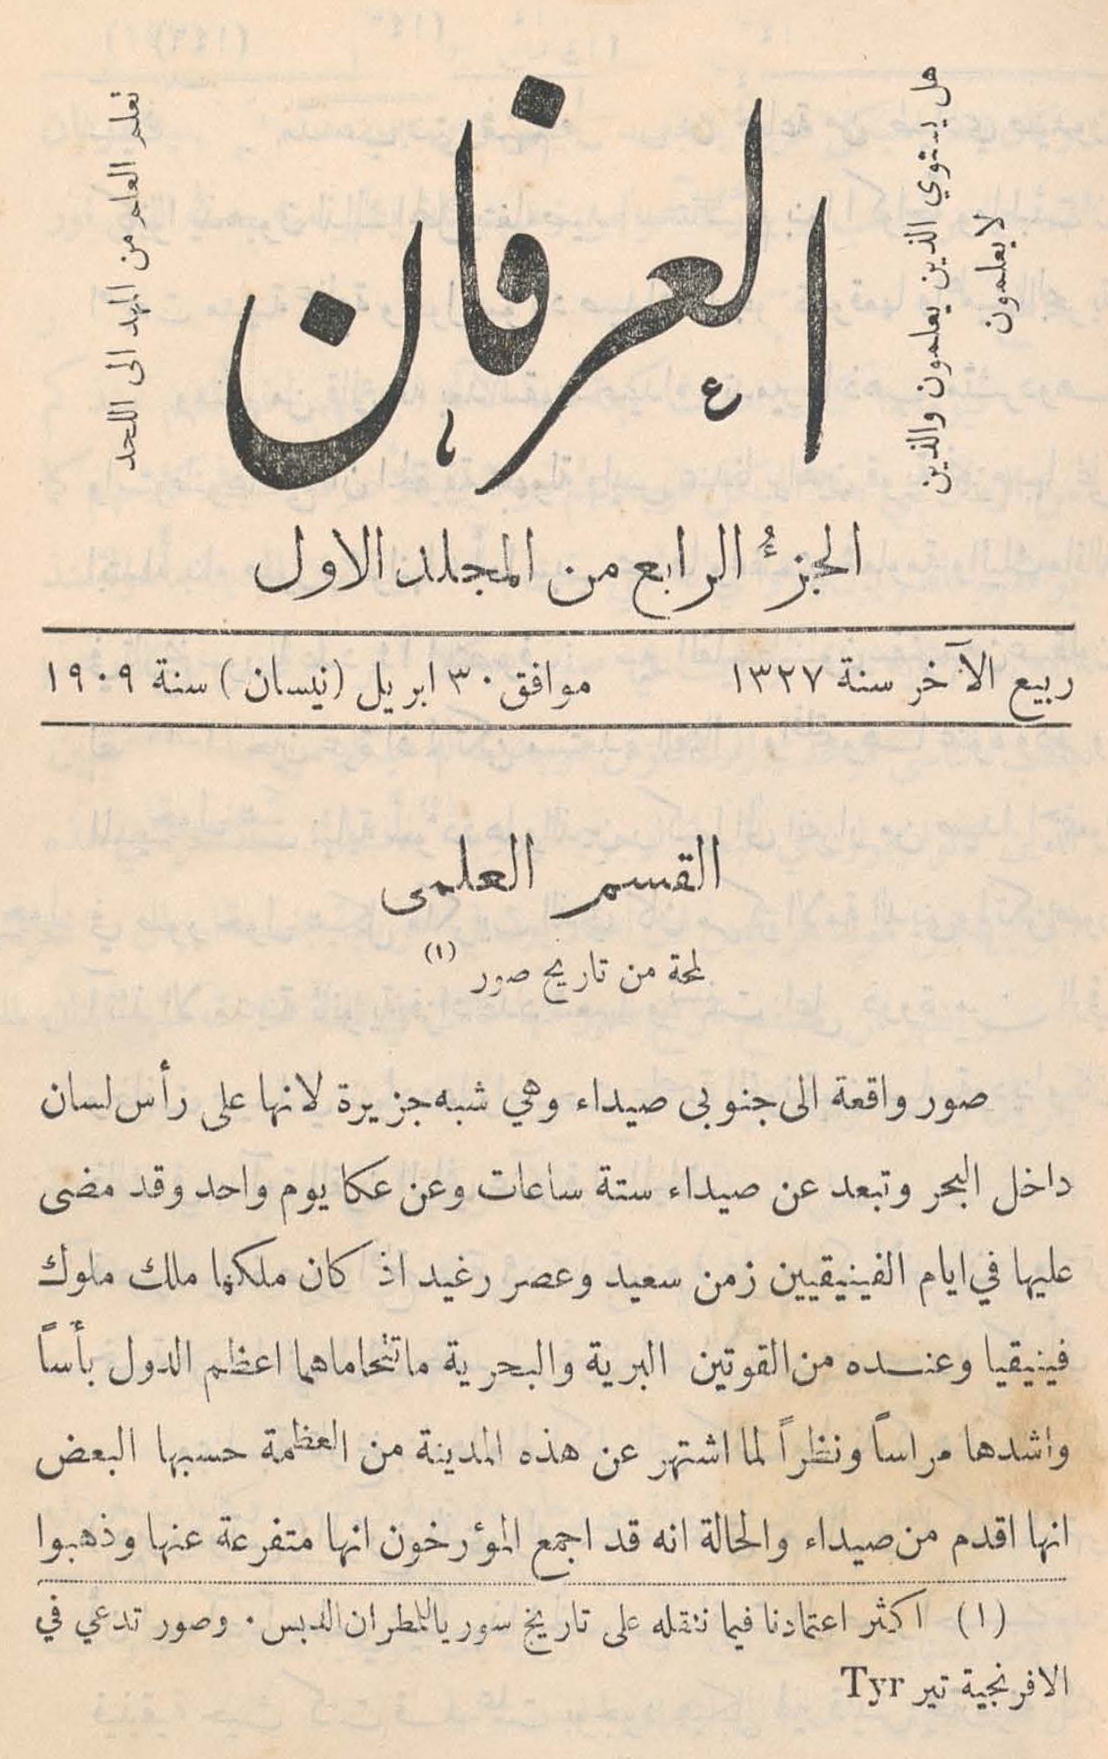 هل يستوي الذين يعلمون والذين
لا يعلمون
العرفان
تعلم العلم من المهد الى اللحد
الجزء الرابع من المجلد الاول
ربيع الآخر سنة ١٣٢٧ موافق ٣٠ ابريل (نيسان) سنة ١٩٠٩
القسم العلمى
لمحة من تاريخ صور (١)
صور واقعة الى جنوبى صيداء وهي شبه جزيرة لانها على رأس لسان
داخل البحر وتبعد عن صيداء ستة ساعات وعن عكا يوم واحد وقد مضى
عليها في ايام الفينيقيين زمن سعيد وعصر رغيد اذ كان ملكها ملك ملوك
فينيقيا وعنده من القوتين البرية والبحرية ما تتحاماهما اعظم الدول بأساً
واشدها مراساً ونظراً لما اشتهر عن هذه المدينة من العظمة حسبها البعض
انها اقدم من صيداء والحالة انه قد اجمع المؤرخون انها متفرعة عنها وذهبوا
(١) اكثر اعتمادنا فيما ننقله على تاريخ سوريا للمطران الدبس . وصور تدعي في
الافرنجية تير Tyr